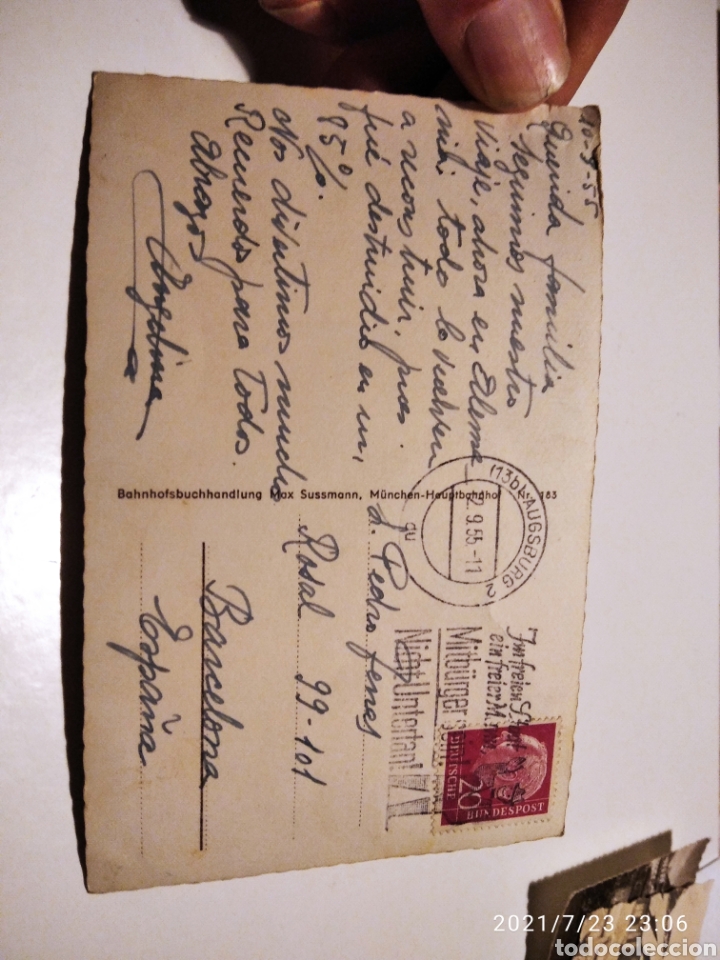 10-9-55
Querida familia
Seguimos nuestro
viaje, ahora en Alema
nia, todo lo vuelven
a reconstruir, pues
fué destruido en un,
95%.
Nos divertimos mucho
Recuerdos para todos.
Abrazos
Angelina
Bahnhofsbuchhandlung Max Sussmann, München-Hauptbahnhof 183
(13b) AUGSBURG 2
2.9.55-11
qu
"Im freien Staat
ein freier Mann"
Mitbürger sein
Nicht Untertan!
DEUTSCHE
BUNDESPOST
20
Pedro
Rosal 99-101
Barcelona
España
2021/7/23 23:06
todocoleccion